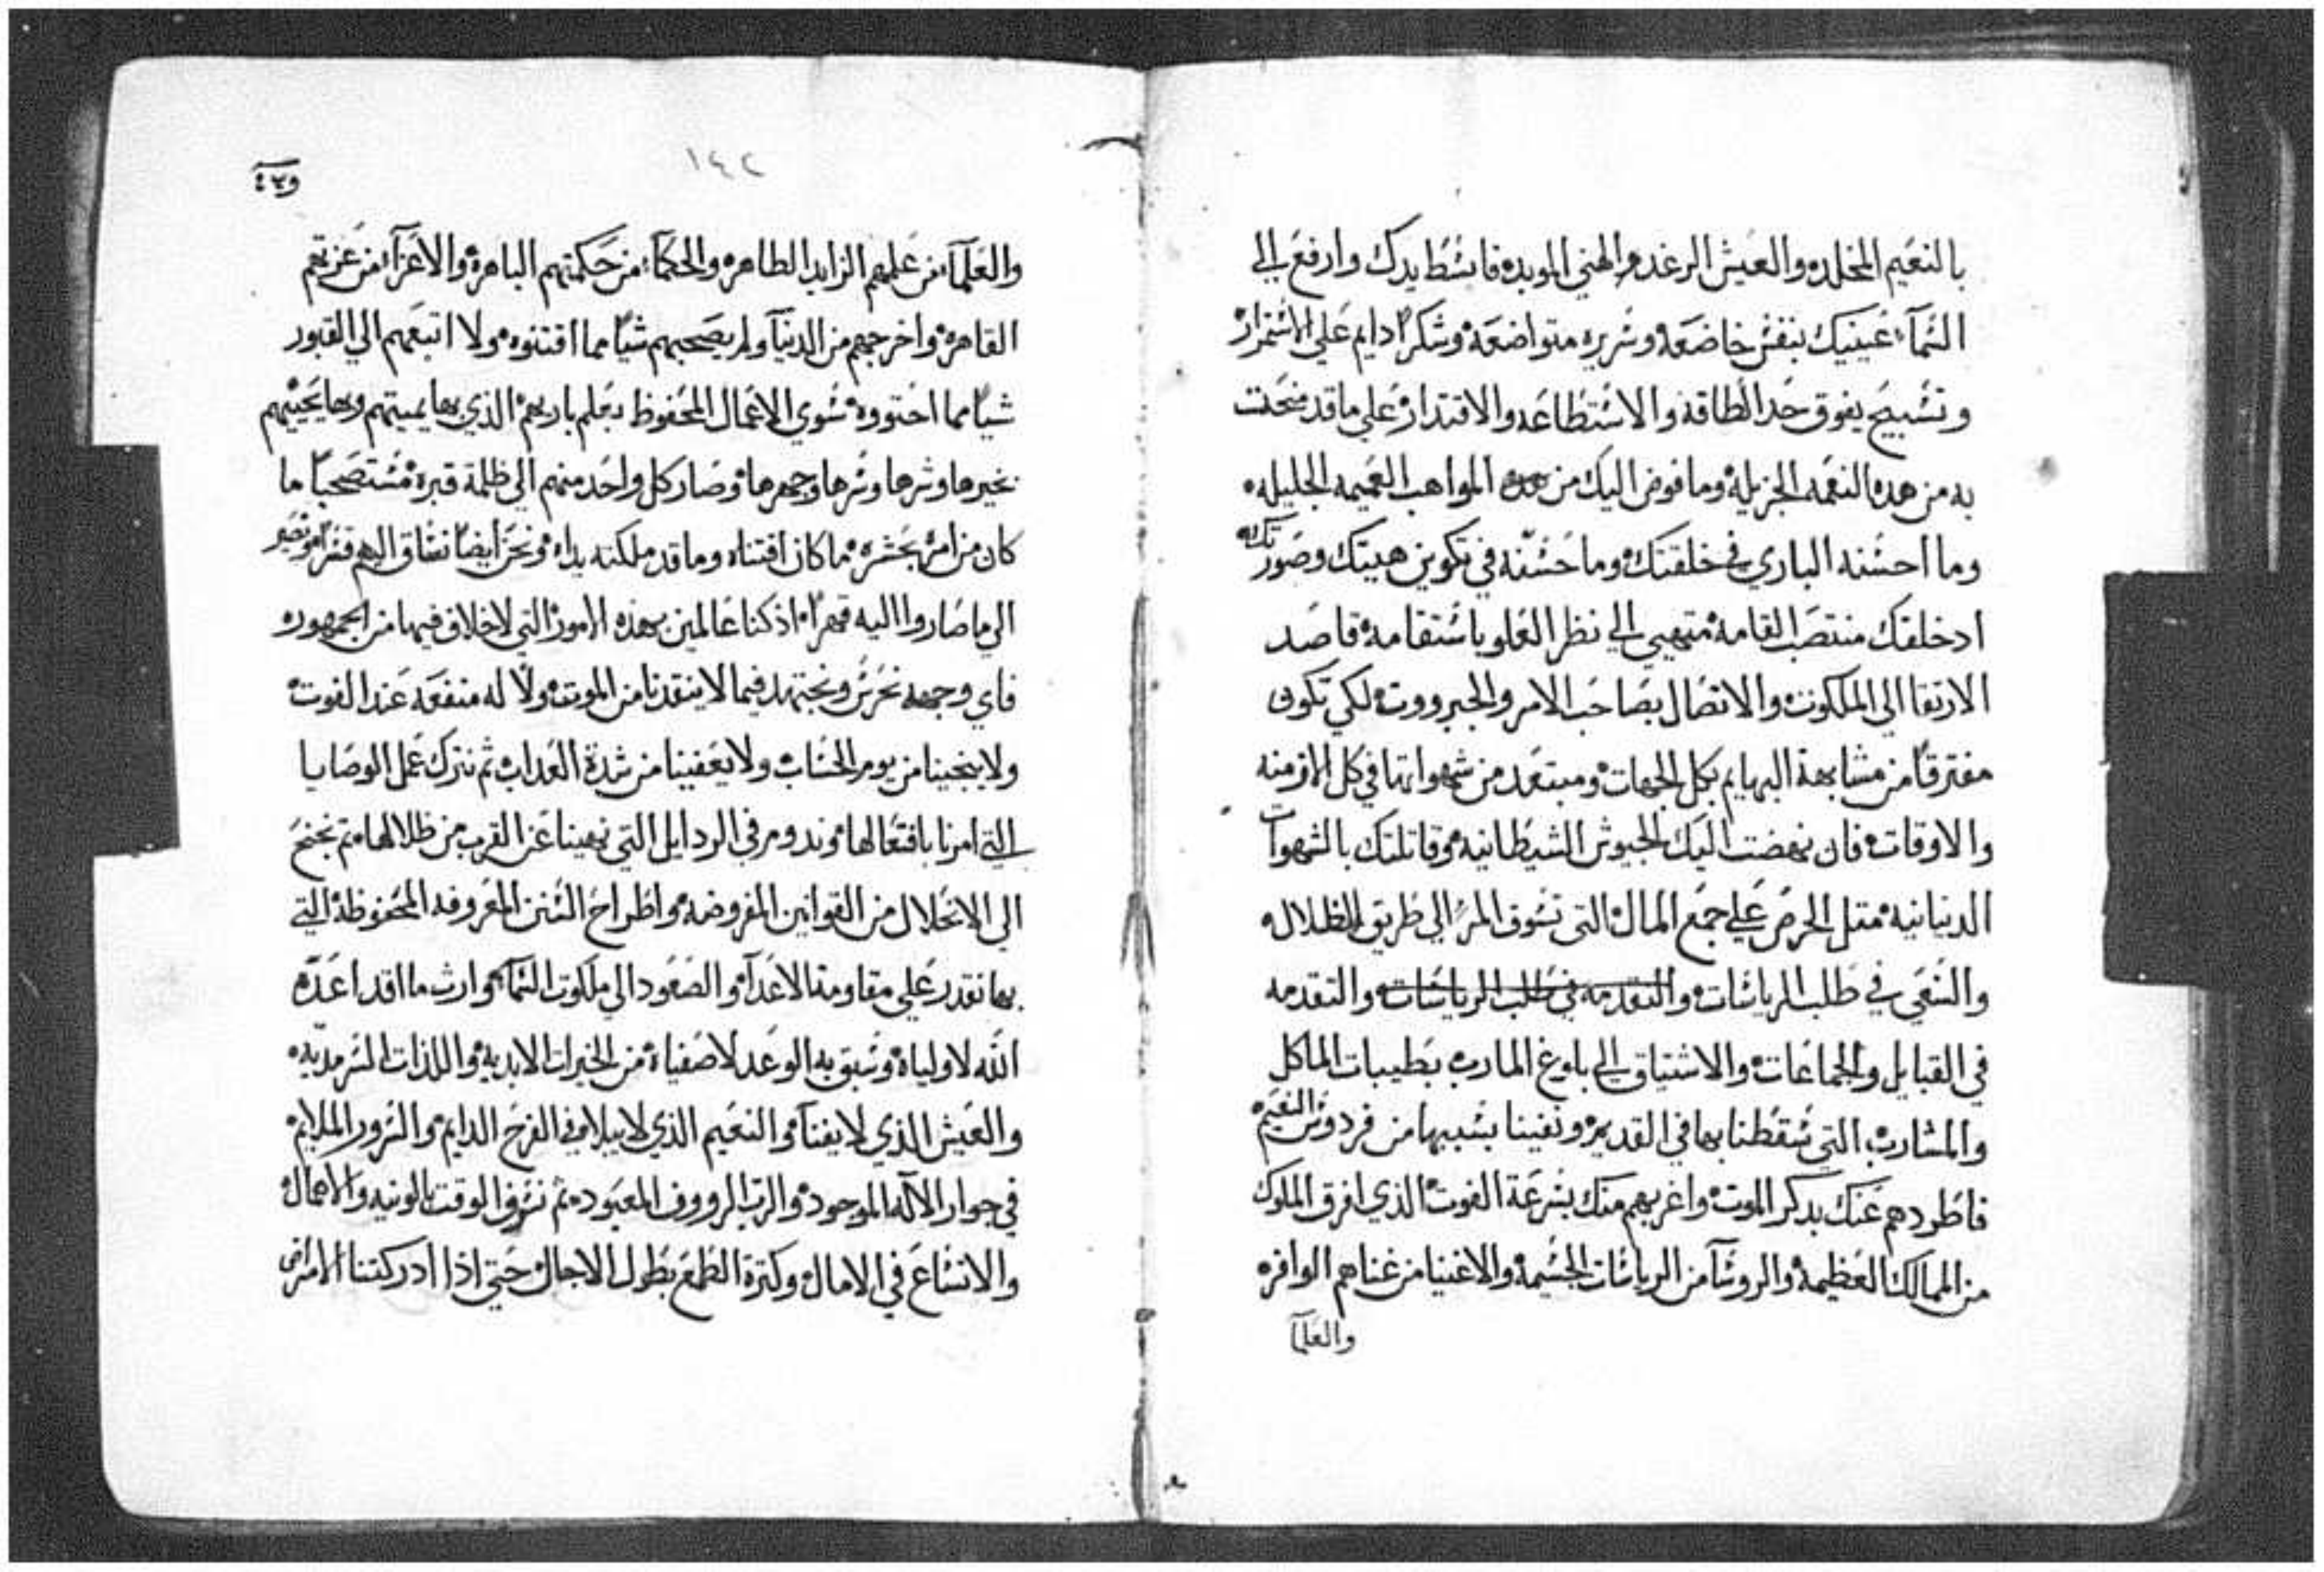 بالنعيم المخلده والعيش الرغد والهني الموبده فابسط يدك وارفع الي
السمآء عينيك بنفس خاضعه وسريره متواضعه وشكرًا دايم علي الاستمرار
وتسبيح يفوق حد الطاقه والاستطاعه والاقتدار علي ما قد منحت
به من هده النعمه الجزيله وما فوض اليك من هده المواهب العميمه الجليله
وما احسنه الباري في خلقتك وما حسنه في تكوين هيتك وصورتك
اد خلقك منتصب القامه متهيي الي نظر العلو باستقامه قاصد
الارتقا الي الملكوت والاتصال بصاحب الامر والجبرووت لكي تكون
مفترقًا من مشابهة البهايم بكل الجهات ومبتعد من شهواتها في كل الازمنه
والاوقات فان نهضت اليك الجيوش الشيطانيه وقاتلتك بالشهوات
الدنيانيه متل الحرص علي جمع المال التي تسوق المرء الي طريق الظلال
والسعي في طلب الرياسات والتقدمه في طلب الرياسات والتقدمه
في القبايل والجماعات والاشتياق الي بلوغ المارب بطيبات الماكل
والمشارب التي سقطنا بها في القديم ونفينا بسببها من فردوس النعيم
فاطردهم عنك بدكر الموت واغربهم منك بسرعة الفوت الذي افرق الملوك
من الممالك العظيمه والروسآ من الرياسات الجسيمه والاغنيا من غناهم الوافره
والعلمآ
١٤٢
والعلمآء من علمهم الزايد الطاهره والحكمآء من حكمتهم الباهره والاعزآء من عزتهم
القاهره واخرجهم من الدنيآ ولم يصحبهم شيًا مما اقتنوه ولا اتبعهم الي القبور
شيًا مما احتووه سوي الاعمال المحفوظ بعلم باريهم الذي بها يميتهم وبها يحييهم
بخيرها وشرها وسرها وجهرها وصار كل واحد منهم الي ظلمة قبره مستصحبًا ما
كان من امره بحسره مما كان اقتناه وما قد ملكته يداه ونحن ايضًا نساق اليهم قسرًا ونصير
الي ما صاروا اليه قهرًا اذ كنا عالمين بهذه الامور التي لا خلاف فيها من الجمهور
فاي وجهه نحرس ونجتهد فيما لا ينقدنا من الموت ولا له منفعه عند الفوت
ولا ينجينا من يوم الحساب ولا يعفينا من شدة العداب ثم نترك عمل الوصايا
التي امرنا بافتعالها وندوم في الردايل التي نهينا عن القرب من ظلالها ثم نجنح
الي الانحلال من القوانين المفروضه واطراح السنن المعروفه المحفوظه التي
بها نقدر علي مقاومة الاعدآء والصعود الي ملكوت السمآء وارث ما قد اعده
الله لاولياه وسبق به الوعد لاصفياه من الخيرات الابديه واللذات السرمديه
والعيش الذي لا يفنآ والنعيم الذي لا يبلا في الفرح الدايم والسرور الملايم
في جوار الاله الموجود والرب الرووف المعبود ثم نسوف الوقت بالونيه والاهمال
والاتساع في الامال وكترة الطمع بطول الاجال حتي اذا ادركتنا الامراض